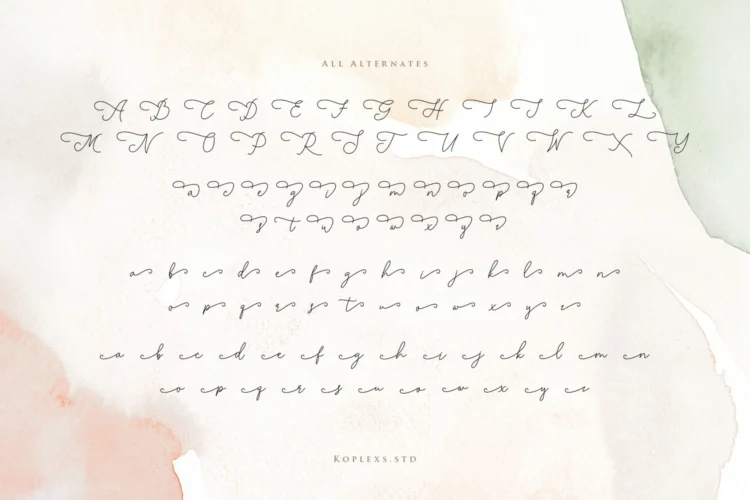 All Alternates
A B C D E F G H I J K L
M N O P Q R S T U V W X Y
a c e g i j m n o p q r
s t u v w x y z
a b c d e f g h i j k l m n
o p q r s t u v w x y z
a b c d e f g h i j k l m n
o p q r s u v w x y z
Koplexs.std